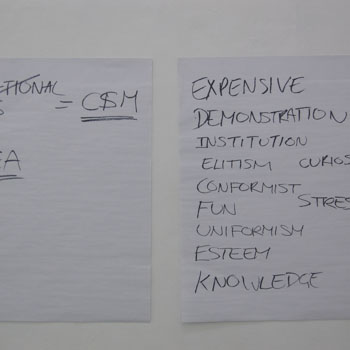 = C$M
EXPENSIVE
DEMONSTRATION
INSTITUTION
ELITISM CURIOS
CONFORMIST
FUN STRES
UNIFORMISM
ESTEEM
KNOWLEDGE